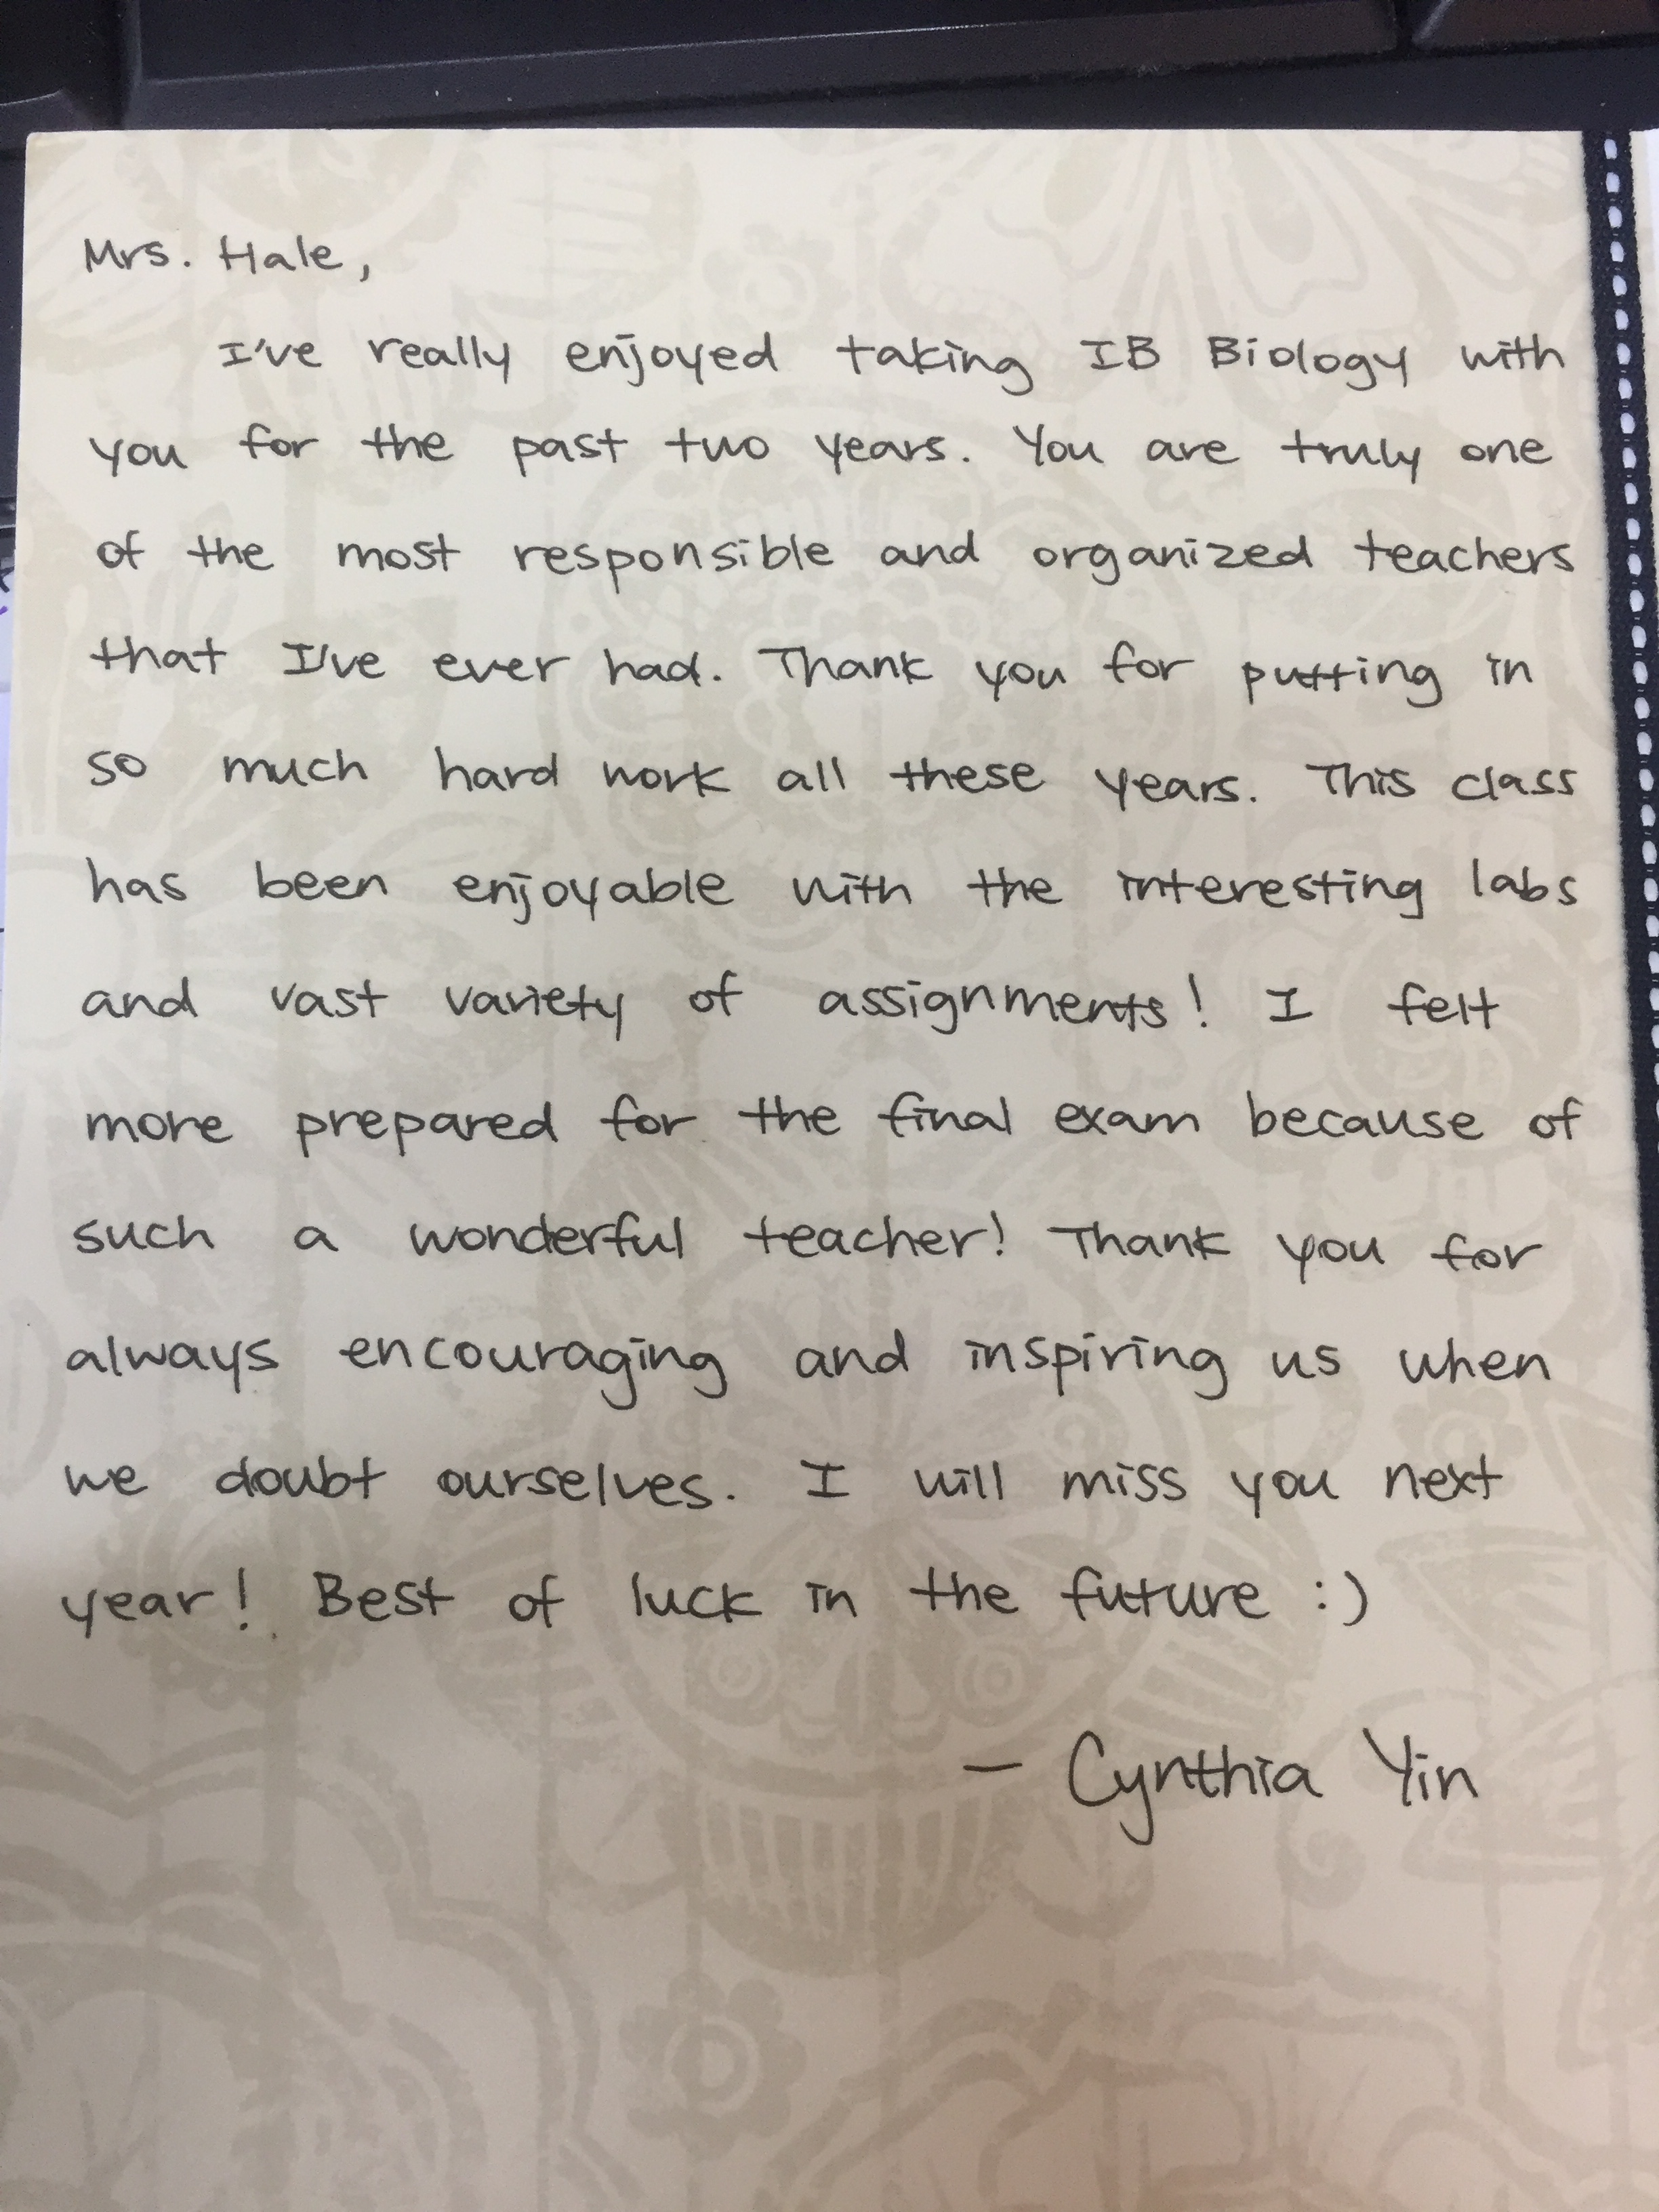 Mrs. Hale,
I've really enjoyed taking IB Biology with
you for the past two years. You are truly one
of the most responsible and organized teachers
that I've ever had. Thank you for putting in
so much hard work all these years. This class
has been enjoyable with the interesting labs
and vast variety of assignments! I felt
more prepared for the final exam because of
such a wonderful teacher! Thank you for
always encouraging and inspiring us when
we doubt ourselves. I will miss you next
year! Best of luck in the future :)
— Cynthia Yin